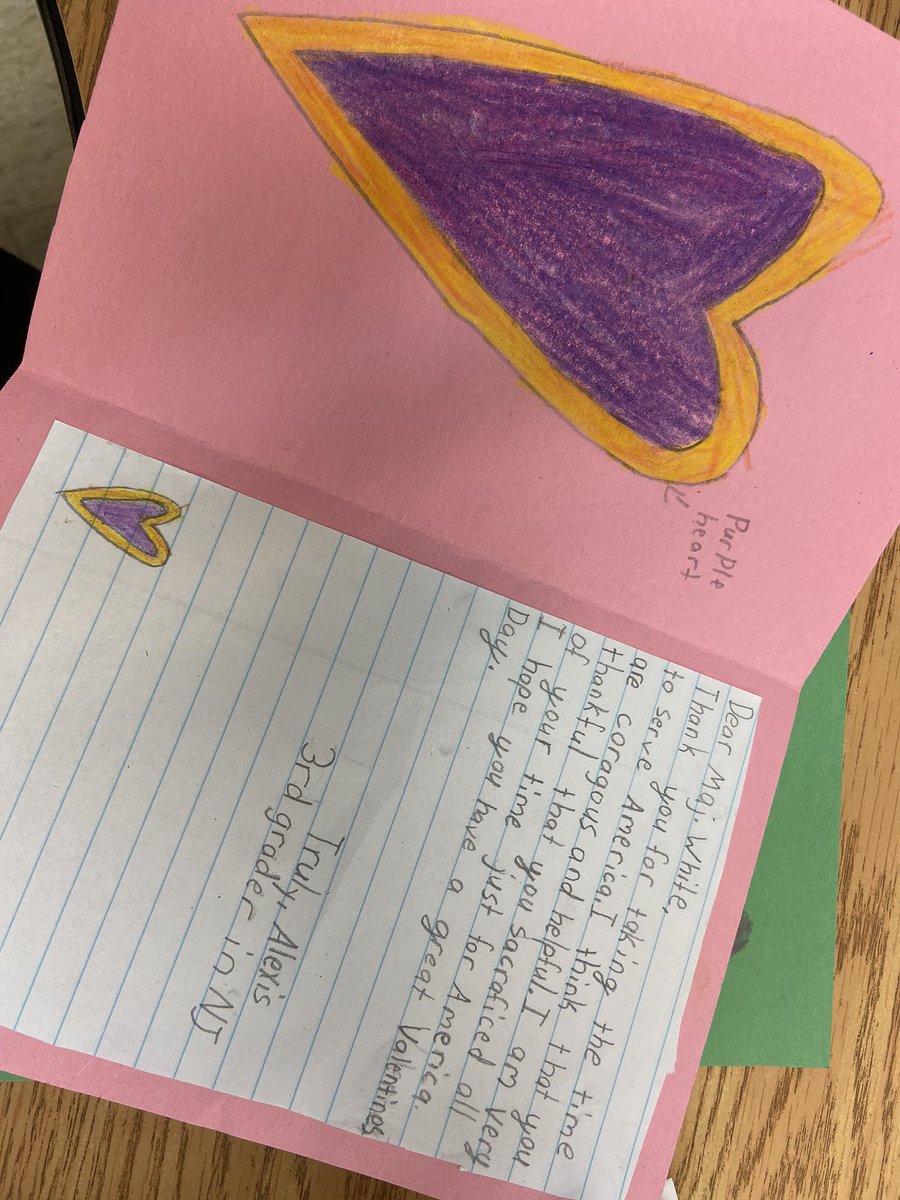 Purple
heart
Dear Maj. White,
Thank you for taking the time
to serve America. I think that you
are coragous and helpful. I am very
thankful that you sacraficed all
of your time just for America.
I hope you have a great Valentines
Day.
Truly, Alexis
3rd grader in NJ